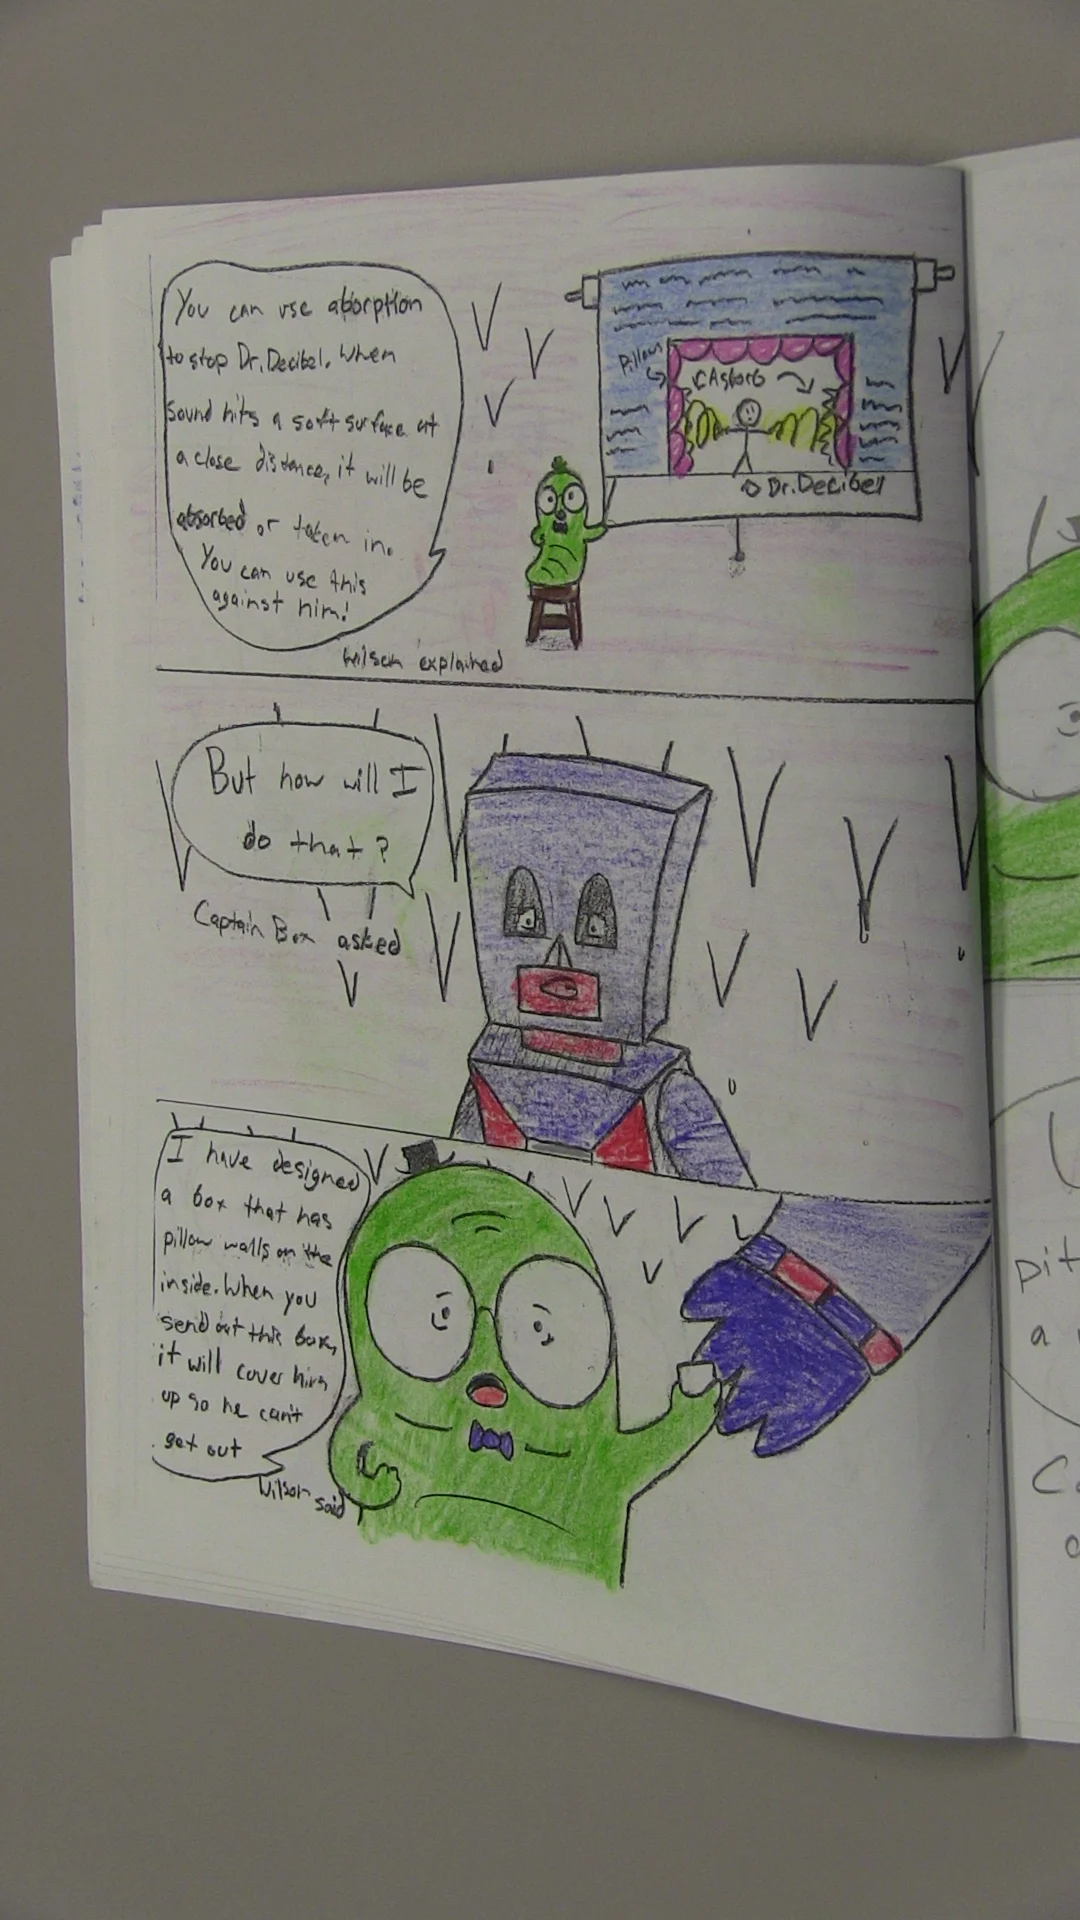 You can use aborption
to stop Dr. Decibel. When
sound hits a soft surface at
a close distance, it will be
absorbed or taken in.
You can use this
against him!
Wilson explained
Pillows
Absorb
Dr. Decibell
But how will I
do that?
Captain Box asked
I have designed
a box that has
pillow walls on the
inside. When you
send out this box,
it will cover him
up so he can't
get out
Wilson said
pit
a